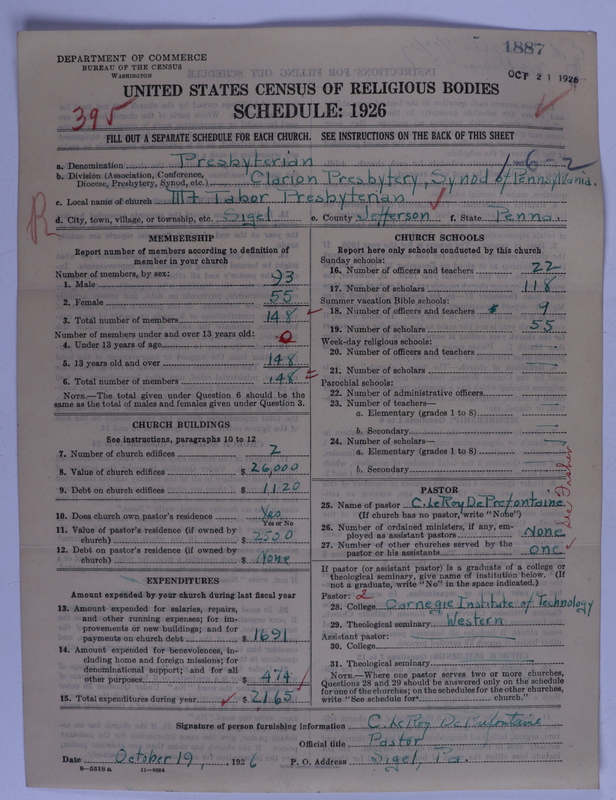 1887
DEPARTMENT OF COMMERCE
BUREAU OF THE CENSUS
WASHINGTON
OCT 21 1926
UNITED STATES CENSUS OF RELIGIOUS BODIES
SCHEDULE: 1926
395
FILL OUT A SEPARATE SCHEDULE FOR EACH CHURCH. SEE INSTRUCTIONS ON THE BACK OF THIS SHEET
1-6-2
a. Denomination Presbyterian
b. Division (Association, Conference, Diocese, Presbytery, Synod, etc.) Clarion Presbytery, Synod of Pennsylvania.
c. Local name of church Mt Tabor Presbyterian
R
d. City, town, village, or township, etc. Sigel e. County Jefferson f. State Penna.
MEMBERSHIP
Report number of members according to definition of
member in your church
Number of members, by sex:
1. Male 93
2. Female 55
3. Total number of members 148
Number of members under and over 13 years old:
4. Under 13 years of age 0
5. 13 years old and over 148
6. Total number of members 148
NOTE.—The total given under Question 6 should be
same as the total of males and females given under Question 3.
CHURCH BUILDINGS
See instructions, paragraphs 10 to 12
7. Number of church edifices 2
8. Value of church edifices $ 26,000
9. Debt on church edifices $ 1120
10. Does church own pastor's residence Yes
Yes or No
11. Value of pastor's residence (if owned by
church) $ 2500
12. Debt on pastor's residence (if owned by
church) $ None
EXPENDITURES
Amount expended by your church during last fiscal year
13. Amount expended for salaries, repairs,
and other running expenses; for im-
provements or new buildings; and for
payments on church debt $ 1691
14. Amount expended for benevolences, in-
cluding home and foreign missions; for
denominational support; and for all
other purposes $ 474
15. Total expenditures during year $ 2165
CHURCH SCHOOLS
Report here only schools conducted by this church
Sunday schools:
16. Number of officers and teachers 22
17. Number of scholars 118
Summer vacation Bible schools:
18. Number of officers and teachers 9
19. Number of scholars 55
Week-day religious schools:
20. Number of officers and teachers
21. Number of scholars
Parochial schools:
22. Number of administrative officers
23. Number of teachers—
a. Elementary (grades 1 to 8)
b. Secondary
24. Number of scholars—
a. Elementary (grades 1 to 8)
b. Secondary
PASTOR
25. Name of pastor C. LeRoy DePrefontaine
(If church has no pastor, write "None")
26. Number of ordained ministers, if any, em-
ployed as assistant pastors None
27. Number of other churches served by the
pastor or his assistants one
If pastor (or assistant pastor) is a graduate of a college or
theological seminary, give name of institution below. (If
not a graduate, write "No" in the space indicated.)
Pastor: 2
28. College Carnegie Institute of Technology
29. Theological seminary Western
Assistant pastor:
30. College
31. Theological seminary
NOTE.—Where one pastor serves two or more churches,
Questions 28 and 29 should be answered only on the schedule
for one of the churches; on the schedules for the other churches,
write "See schedule for church."
Signature of person furnishing information C. LeRoy DePrefontaine
Official title Pastor
Date October 19, 1926 P. O. Address Sigel, Pa.
8—5518a 11—9264